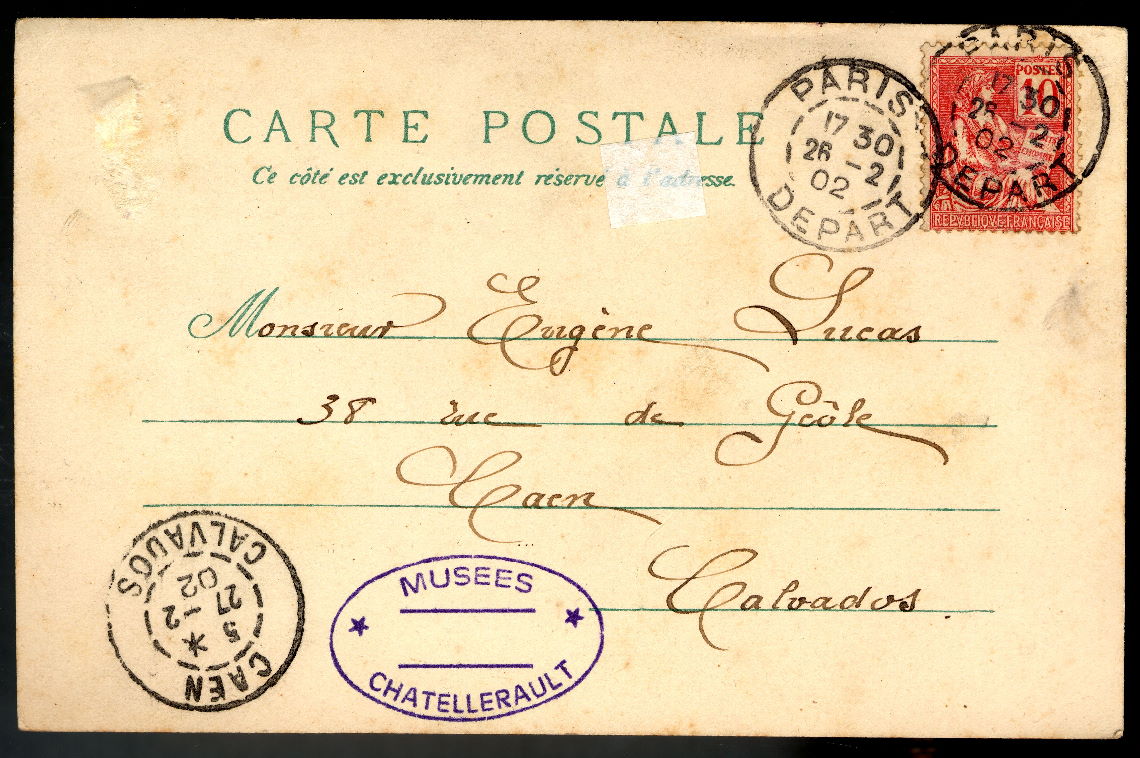 CARTE POSTALE
Ce côté est exclusivement réservé à l'adresse.
PARIS
17 30
26 -2
02
DEPART
PARIS
17 30
26 -2
02
DEPART
POSTES
10
REPVBLIQVE FRANÇAISE
Monsieur Eugène Lucas
38 rue de Geôle
Caen
Calvados
CAEN
5 *
27 -2
02
CALVADOS
MUSEES
CHATELLERAULT